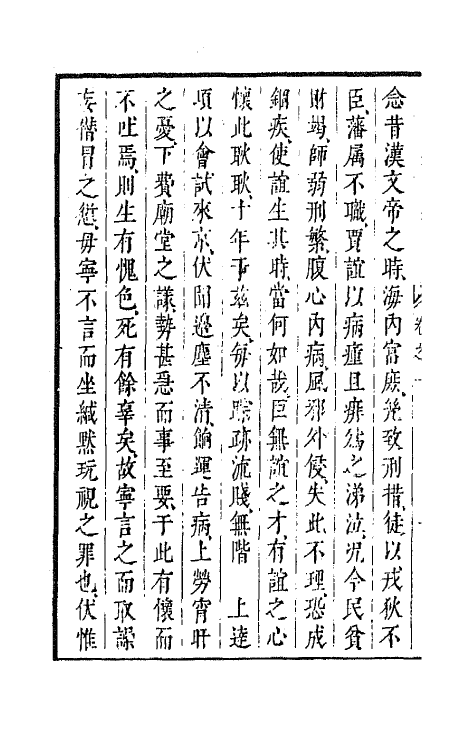 念昔漢文帝之時、海內富庶、幾致刑措、徒以戎狄不
臣、藩属不職、賈誼以病瘇且痱為之涕泣、况今民貧
財竭、師弱刑繁、腹心內病、風邪外侵、失此不理、恐成
錮疾、使誼生其時、當何如哉、臣無誼之才、有誼之心
懷此耿耿、十年于兹矣、每以踪疏流賤、無階 上達
項以會試來京、伏聞邊塵不清、餉運告病、上勞宵旰
之憂、下費廟堂之議、勢甚急而事至要、于此有懷而
不吐焉、則生有愧色、死有餘辜矣、故寧言之而取譟
妄僭冒之愆、毋寧不言而坐緘默玩視之罪也、伏惟
卷之一